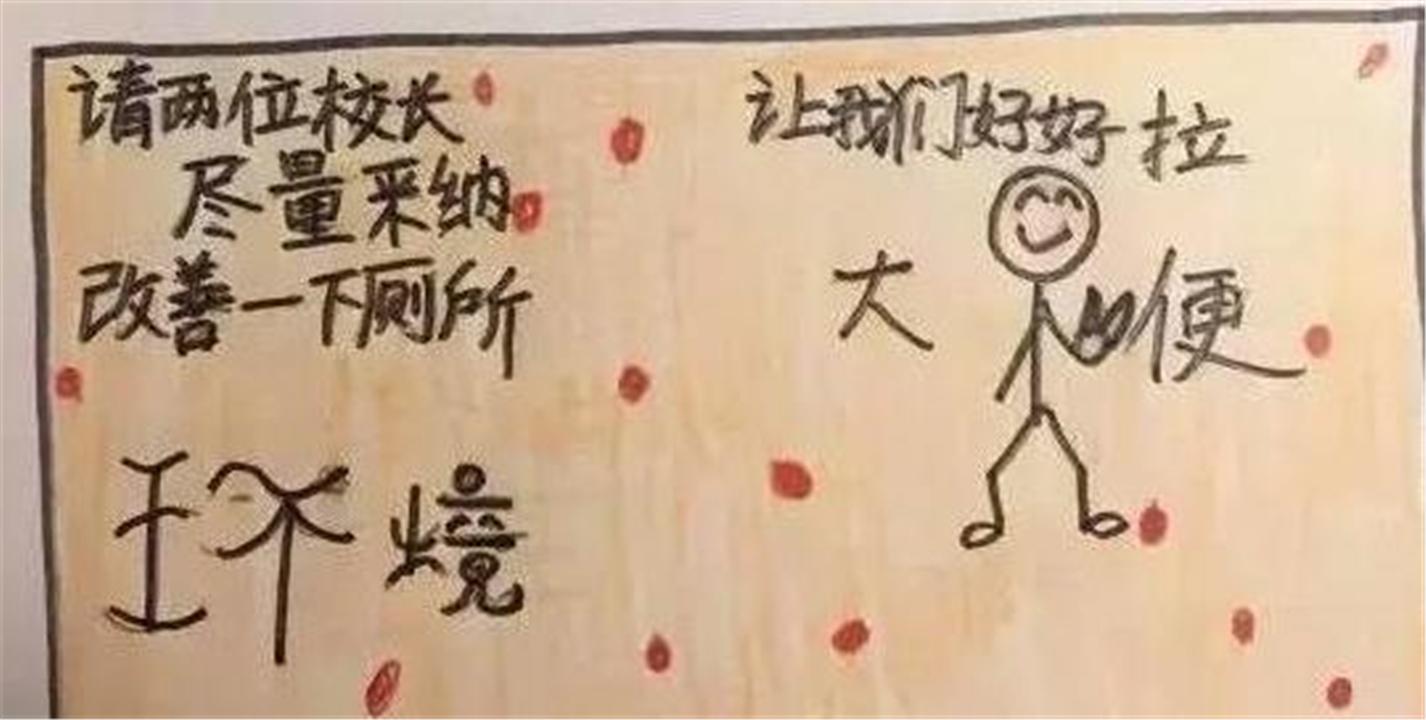 请两位校长
尽量采纳
改善一下厕所
环境
让我们好好拉
大便